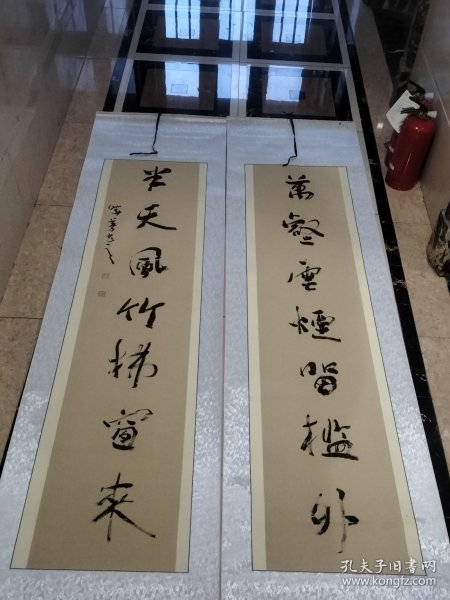 萬壑雲煙留檻外
半天風竹拂窗來
孔夫子旧书网
www.kongfz.com